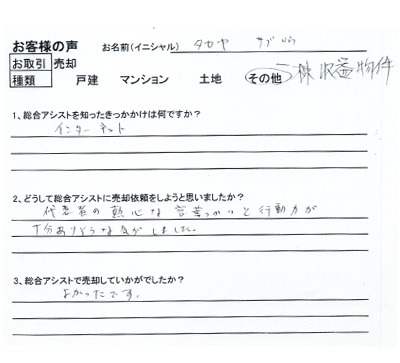 お客様の声 お名前(イニシャル) タカヤ
お取引 売却
種類 戸建 マンション 土地 その他 一棟収益物件
1、総合アシストを知ったきっかけは何ですか？
インターネット
2、どうして総合アシストに売却依頼をしようと思いましたか？
代表者の熱心な言葉づかいと行動力が
十分ありそうな気がしました。
3、総合アシストで売却していかがでしたか？
よかったです。